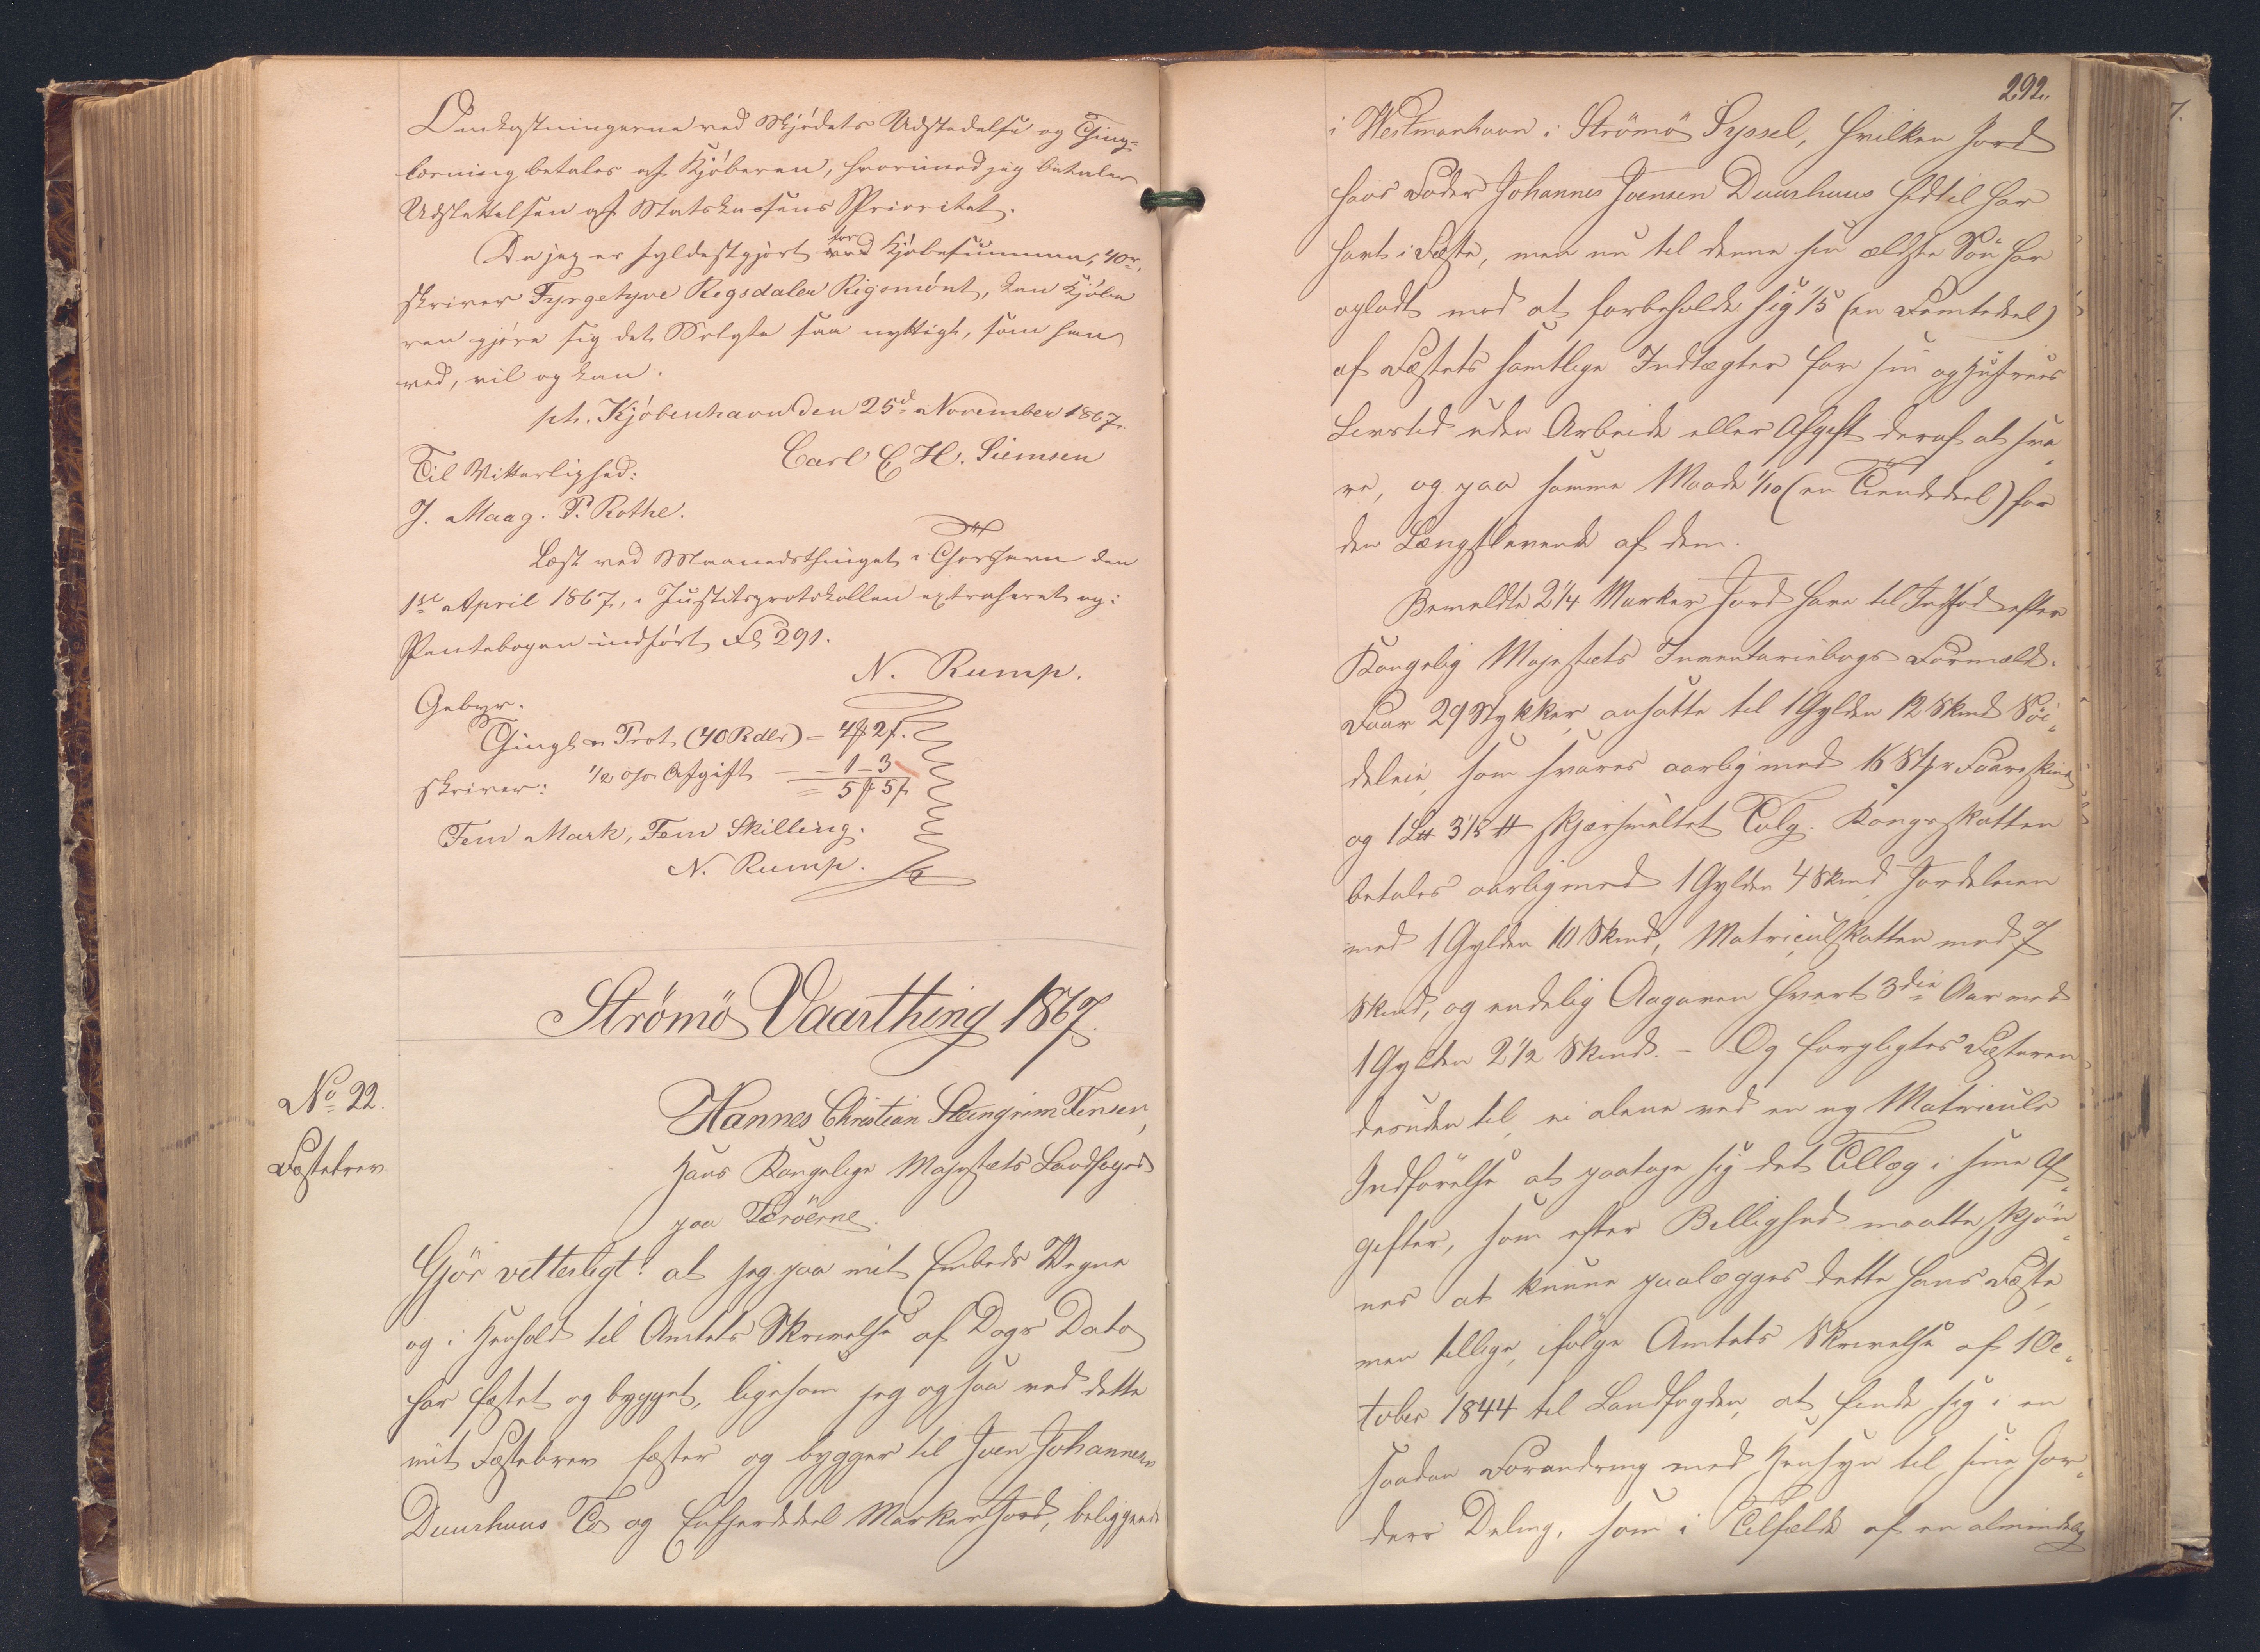 Omkostningerne ved Skjødets Udstedelse og Thing-
læsning betales af Kjøberen, hvorimod jeg betaler
Udslettelsen af Statskassens Prioritet.
Da jeg er fyldestgjort for ved Kjøbesummen, 40 r,
skriver Fyrgetyve Rigsdaler Rigsmønt, kan Kjøbe
ren gjøre sig det Solgte saa nyttigt, som han
ved, vil og kan.
pt. Kjøbenhavn den 25d November 1867.
Carl E H. Siemsen
Til Vitterlighed:
J. Maag. P. Rothe.
Læst ved Maanedsthinget i Thorshavn den
1ste April 1867, i Justitsprotokollen extraheret og i
Pantebogen indført Fol 291.
N. Rump.
Gebyr.
Thingl. Prot (40 Rdlr) = 4 ₰ 2 ſ.
1/2 o/o Afgift = 1 - 3
skriver: = 5 ₰ 5 ſ.
Fem Mark, Fem Skilling.
N. Rump.
Strömö Vaarthing 1867.
No 22.
Fæstebrev
Hannes Christian Steingrim Finsen,
Hans Kongelige Majestæts Landfoged
paa Færöerne.
Gjör vitterligt: at jeg paa mit Embeds Vegne
og i Henhold til Amtets Skrivelse af Dags Dato
har fæstet og bygget, ligesom jeg ogsaa ved dette
mit Fæstebrev fæster og bygger til Joen Johannesen
Duurhuus To og Enfjerdedeel Marker Jord, beliggende
292.
i Westmanhavn i Strömö Syssel, hvilken Jord
hans Fader Johannes Joensen Duurhuus hidtil har
havt i Fæste, men nu til denne sin ældste Sön har
opladt mod at forbeholde sig 1/5 (en Femtedeel)
af Fæstets samtlige Indtægter for sin og Hustrues
Livstid uden Arbeide eller Afgift deraf at sva
re, og paa samme Maade 1/10 (en Tiendedeel) for
den Længstlevende af dem.
Bemeldte 2 1/4 Marker Jord have til Indsöd efter
Kongelig Majestæts Inventariebogs Formeld.
Faar 29 Stykker, ansatte til 1 Gylden 12 Skind Söi
deleie, som svares aarlig med 16 Stkr Faareskind
og 1 L℔ 3 1/5 ℔ skjærsmeltet Talg. Kongsskatten
betales aarlig med 1 Gylden 4 Skind Jordeleien
med 1 Gylden 10 Skind, Matriculskatten med 7
Skind, og endelig Aagaven hvert 3die Aar med
1 Gylden 2 1/2 Skind. - Og forpligtes Fæsteren
desuden til, ei alene ved en ny Matriculs
Indförelse at paatage sig det Tillæg i sine Af
gifter, som efter Billighed maatte skjön
nes at kunne paalægges dette hans Fæste,
men tillige, ifölge Amtets Skrivelse af 1 Oc
tober 1844 til Landfogden, at finde sig i en
saadan Forandring med Hensyn til sine Jor
ders Deling, som i Tilfælde af en almindelig